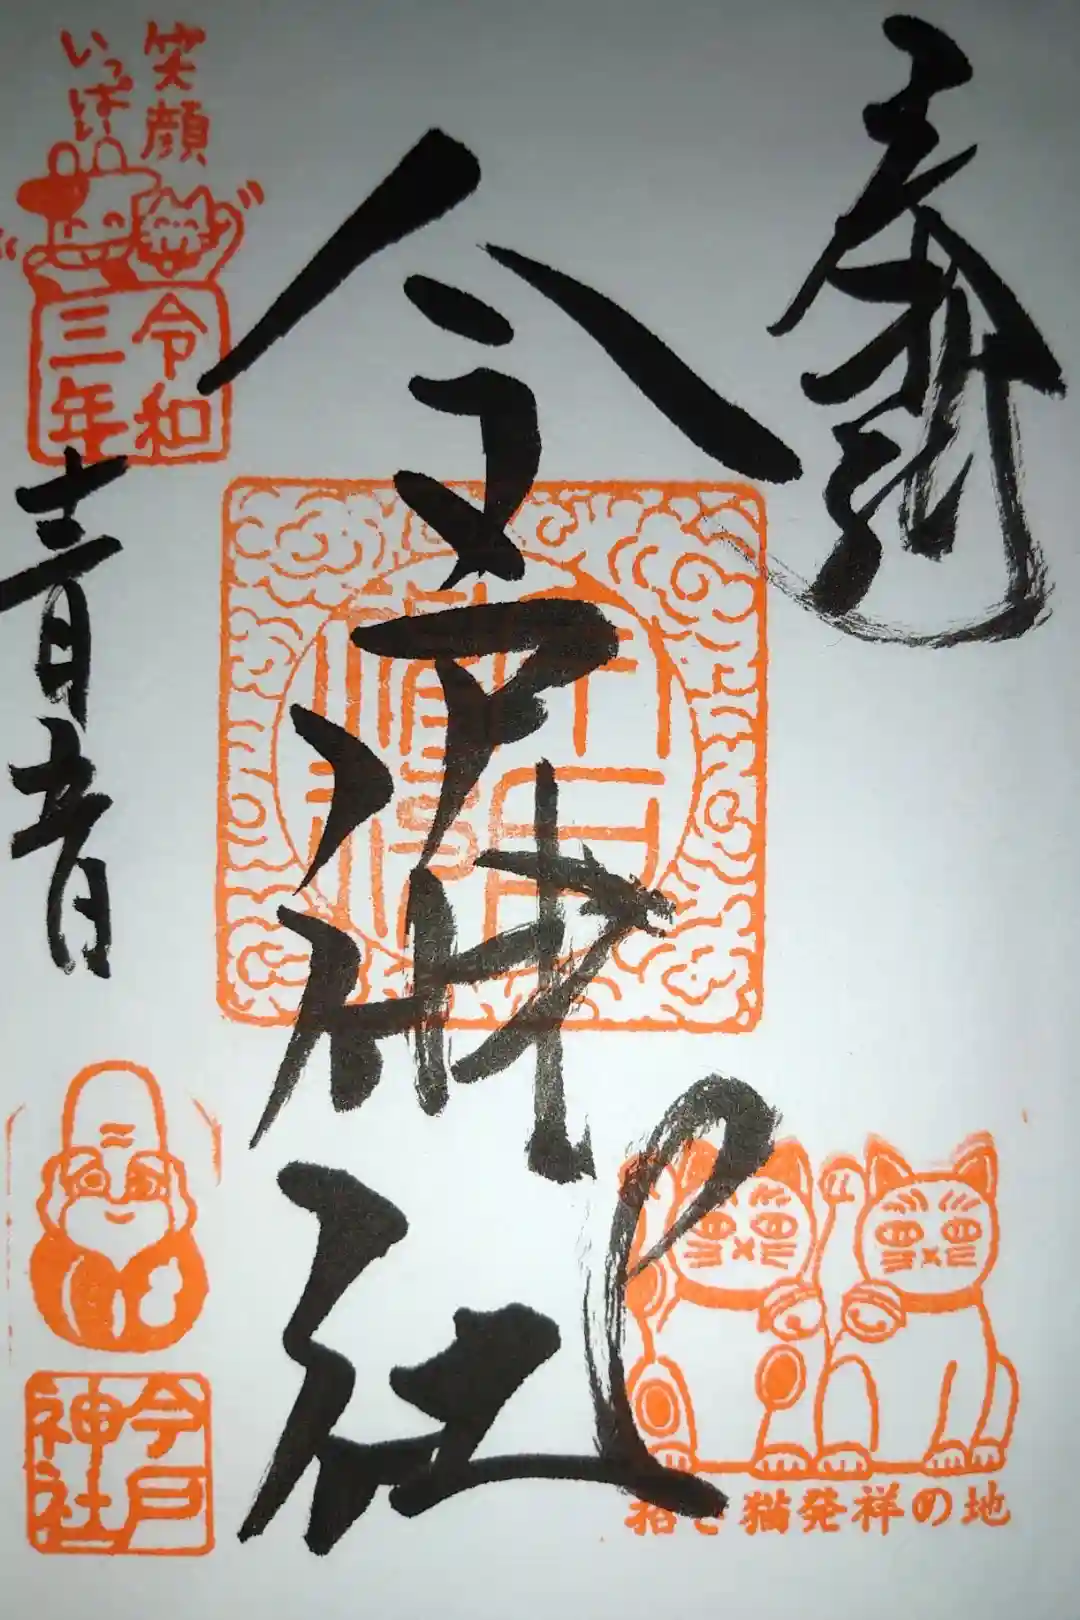 奉拝
今戸神社
笑顔
いっぱい
令和
三年
今戸
神社
招き猫発祥の地